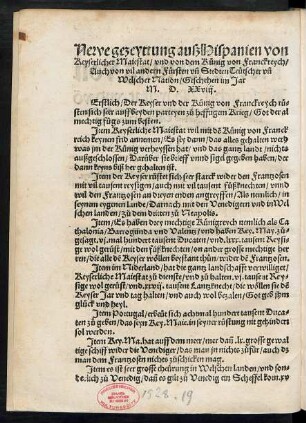 Newe gezeyttung auß Hispanien von
Keyserlicher Maiestat / vnd von dem Künig von Franckreych /
Auch von vil andern Fürsten vñ Stedten Teütscher vñ
Welscher Nation / Geschehen im Jar
M. D. XXviij.
Erstlich / Der Keyser vnd der Künig von Franckreych rüs
sten sich seer auff beyden parteyen zu hefftigem Krieg / Got der al
mechtig fügs zum besten.
Item Keyserliche Maiestat wil mit dē Künig von Franck
reich keynen frid annemen / Es sey dann / das alles gehalten werd
was jm der Künig verheyssen hat / vnd das gantz landt / nichts
außgeschlossen / Darüber sie brieff vnnd sigel gegeben haben / der
dann beyn eyn sind.
Item der Keyser rüstet sich seer starck wider den Frantzosen
mit vil tausent reysigen / auch mit vil tausent Füßknecht / vnd
wil den Frantzosen an dreyen enden angreyffen / Als nemlich / in
seynem eygenen landt / Darnach mit den Venedigern vnd in Wel
schen landen / zu dem dritten zu Neapolis.
Item / Es haben drey mechtige Künigreych nemlich als Ca
thalonia / Barragunda vnd Valentz / vnd haben Key. May. zu
gesagt / vj. mal hundert tausent Ducaten / vnd / lxx. tausent Reysi
ge wol gerüst / vnd drey grosse herren / on ander gemeynschafft her
ren / die alle dē Keyser wöllen beystant thun / wider dē Frantzosen.
Item im Niderland / hat die gantz landschafft verwilliget /
Keyserliche Maiestat zu dienste / vnd zu halten / vj. tausent Rey
sige wol gerüst / vnd .xxvij. tausent Lantzknecht / die wöllen sie dē
Keyser Jar vnd tag halten / vnd auch wol bezalen / Got geb jhm
glück vnd heyl.
Item Portugal / erbeüt sich achtmal hundert tausent Duca
ten zu geben / das jeyn Key. Maie. in seyner rüstung nit gehindert
sol werden
Item Key. Ma. hat auff dem meer / mer dañ .lx. grosse gewal
tige schiff wider die Venediger / das man jn nichts zufür / auch dz
man dem Frantzosen nichts zuschicken mag.
Item es ist seer grosse theurung in Welschen landen / vnd son
derlich zu Venedig / dañ es gilt zu Venedig ein Scheffel korn .xv
1928.19